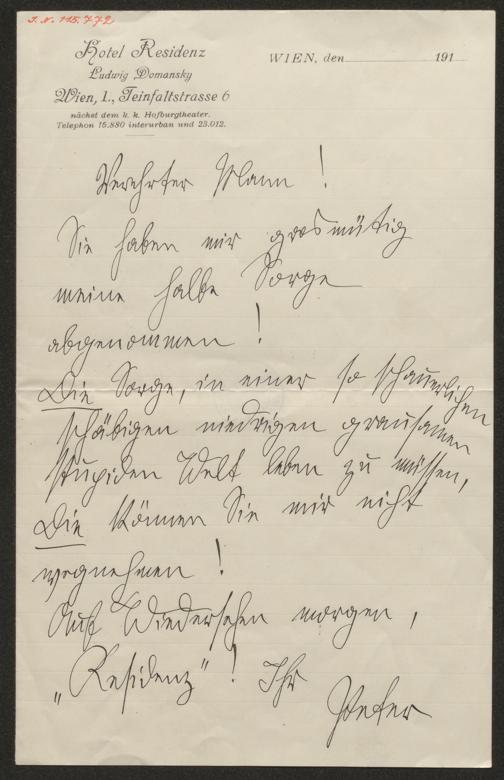 I.N. 115.772
Hotel Residenz
Ludwig Domansky
Wien, 1., Teinfaltstrasse 6
nächst dem k. k. Hofburgtheater.
Telephon 15.880 interurban und 23.012.
WIEN, den 191
Verehrter Mann!
Sie haben mir grosmütig
meine halbe Sorge
abgenommen!
Die Sorge, in einer so schauerlichen
schäbigen niedrigen grausamen
stupiden Welt leben zu müssen,
Die können Sie mir nicht
wegnehmen!
Auf Wiedersehen morgen,
„Residenz"! Ihr
Peter